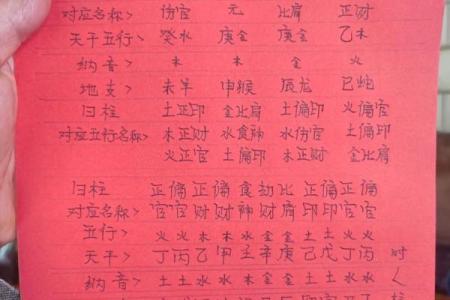 对应名称> 伤官 元 比肩 正财
天干五行> 癸水 庚金 庚金 乙木
纳音> 木 木 金 火
地支> 未羊 申猴 辰龙 巳蛇
日柱 土正印 金比肩 土偏印 火偏官
对应五行名称> 木正财 水食神 水伤官 土偏印
火正官 土偏印 木正财 金比肩
日柱 正偏正偏食劫比正偏正偏
对应名称> 官官财财神财肩印印官官
五行> 火火木木水金金土土火火
天干> 丁丙乙甲壬辛庚己戊丁丙 时
纳音> 土土水水木土土土水水